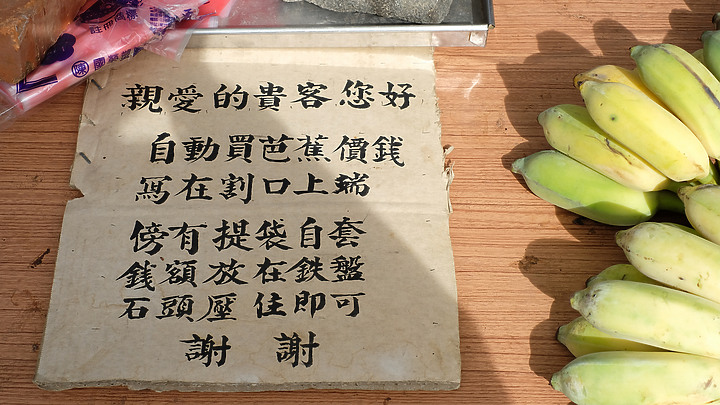 親愛的貴客您好
自動買芭蕉價錢
寫在割口上端
傍有提袋自套
錢額放在鉄盤
石頭壓住即可
謝謝